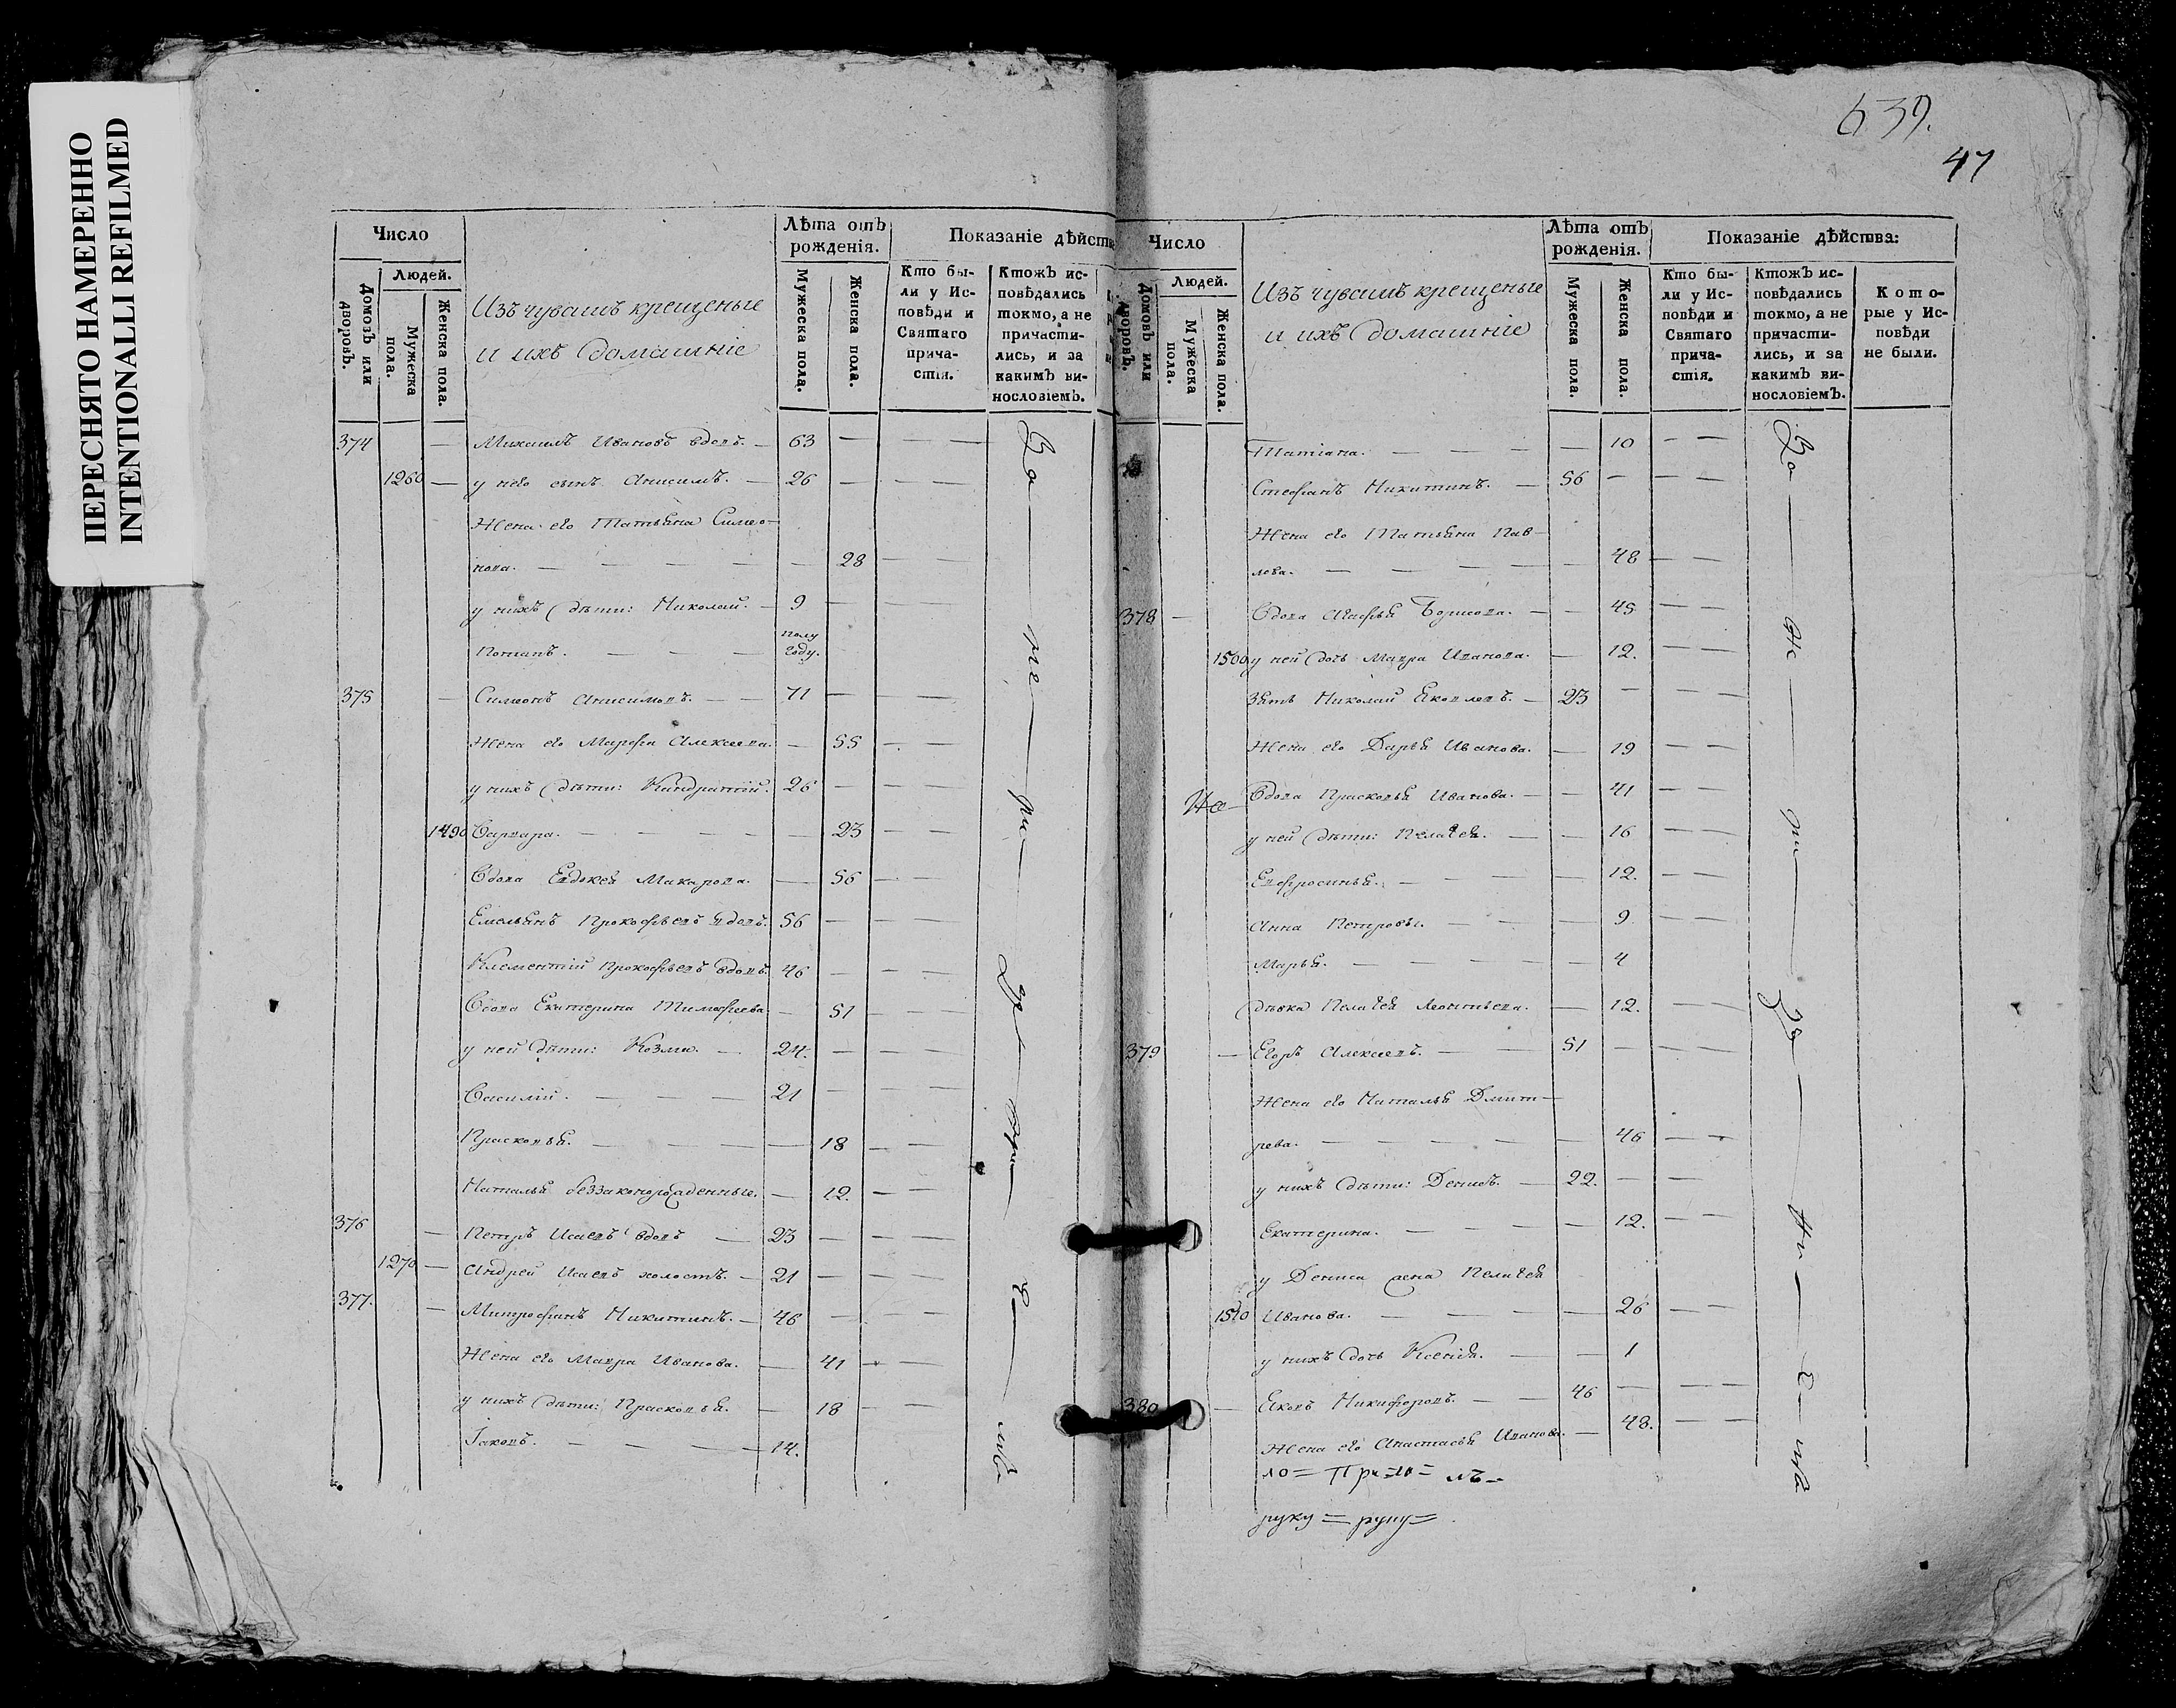 ПЕРЕСНЯТО НАМЕРЕННО
INTENTIONALLI REFILMED
Число
Людей.
Домовъ или дворовъ.
Мужеска пола.
Женска пола.
Изъ чувашъ крещеные
и ихъ домашніе
Лѣта отъ рожденія.
Мужеска пола.
Женска пола.
Показаніе дѣйства
Кто бы-
ли у Ис-
повѣди и
Святаго
прича-
стія.
Ктожъ ис-
повѣдались
токмо, а не
причасти-
лись, и за
какимъ ви-
нословіемъ.
374 — Михаилъ Ивановъ вдовъ. — 63 — — —
1260 — у него сынъ Анисимъ. — 26 — — —
Жена его Татьяна Симео-
нова. — — — — — 28 — —
у нихъ дѣти: Николай. — 9 — — —
Потапъ. — — — полу году.
375 — Симеонъ Анисимовъ. — — 71 — — —
Жена его Марфа Алексеева. — 55 — —
у нихъ дѣти: Кындратій. 26 — — —
1490 Варвара. — — — — — 23 — —
Вдова Евдокея Макарова. — 56 — —
Емельянъ Прокофьевъ вдовъ. 56 — — —
Клементій Прокофьевъ вдовъ. 46 — — —
Вдова Екатерина Тимофеева — 51 — —
у ней дѣти: Козма. — 24. — — —
Василій. — — — 21 — — —
Прасковья. — — — — 18 — —
Наталья беззаконорожденные. — 12. — —
376 — Петръ Исаевъ вдовъ — 23 — — —
1270 — Андрей Исаевъ холостъ. — 21 — — —
377. — Митрофанъ Никитинъ. — 46 — — —
Жена его Мавра Иванова. — 41 — —
у нихъ дѣти: Прасковья. — 18 — —
Іаковъ. — — — — 14.
За — не — ра — — — —
639.
47
Число
Людей.
Домовъ или дворовъ.
Мужеска пола.
Женска пола.
Изъ чувашъ крещеные
и ихъ домашніе
Лѣта отъ рожденія.
Мужеска пола.
Женска пола.
Показаніе дѣйства:
Кто бы-
ли у Ис-
повѣди и
Святаго
прича-
стія.
Ктожъ ис-
повѣдались
токмо, а не
причасти-
лись, и за
какимъ ви-
нословіемъ.
Кото-
рые у Ис-
повѣди
не были.
Татіана. — — — — 10 — —
Стефанъ Никитинъ. — 56 — — —
Жена его Татьяна Пав-
лова. — — — — — 48 — —
378 — Вдова Агафья Борисова. — — 45 — —
1500 у ней дочь Мавра Иванова. — 12. — —
Зять Николай Яковлевъ. — 23 — — —
Жена его Дарья Иванова. — 19 — —
Вдова Прасковья Иванова. — — 41 — —
у ней дѣти: Пелагея. — — 16 — —
Евфросинья. — — — — 12. — —
Анна Петровы. — — — 9 — —
Марья. — — — — — 4
Дѣвка Пелагея Леонтьева. — 12. — —
379 — Егоръ Алексеевъ. — — 51 — — —
Жена его Наталья Дмит-
рева. — — — — — 46 — —
у нихъ дѣти: Денисъ. — 22. — —
Екатерина. — — — — 12. — —
у Дениса жена Пелагея
1510 Иванова. — — — — 26 — —
у нихъ дочь Ксенія. — — 1
380 — Яковъ Никифоровъ. — — 46 — — —
Жена его Анастасья Иванова. — 48. — —
руку =